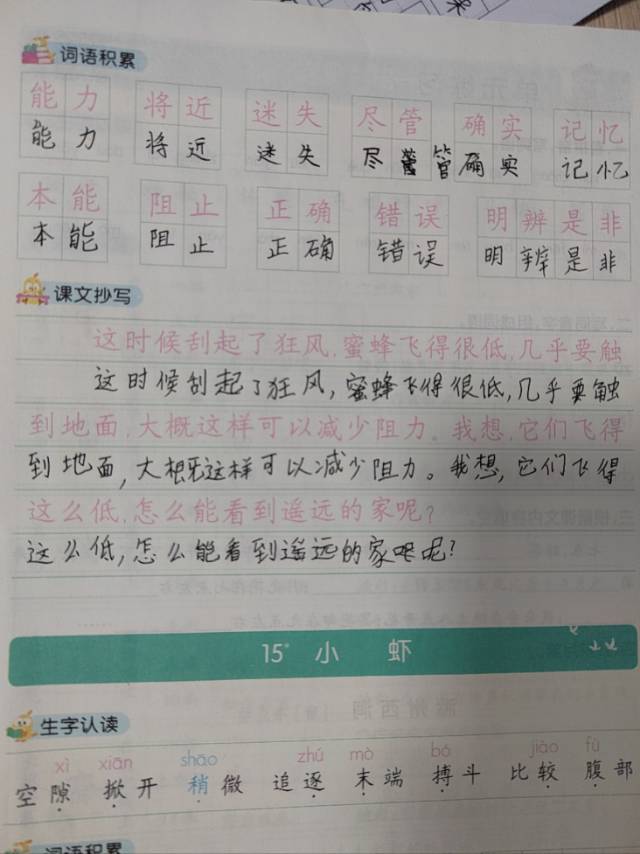 词语积累
能力 将近 迷失 尽管 确实 记忆
能力 将近 迷失 尽管 管 确实 记忆
本能 阻止 正确 错误 明辨是非
本能 阻止 正确 错误 明辨是非
课文抄写
这时候刮起了狂风,蜜蜂飞得很低,几乎要触
这时候刮起了狂风,蜜蜂飞得很低,几乎要触
到地面,大概这样可以减少阻力。我想,它们飞得
到地面,大概这样可以减少阻力。我想,它们飞得
这么低,怎么能看到遥远的家呢?
这么低,怎么能看到遥远的家呢?
15* 小 虾
生字认读
xì xiān shāo zhú mò bó jiào fù
空隙 掀开 稍微 追逐 末端 搏斗 比较 腹部
词语积累